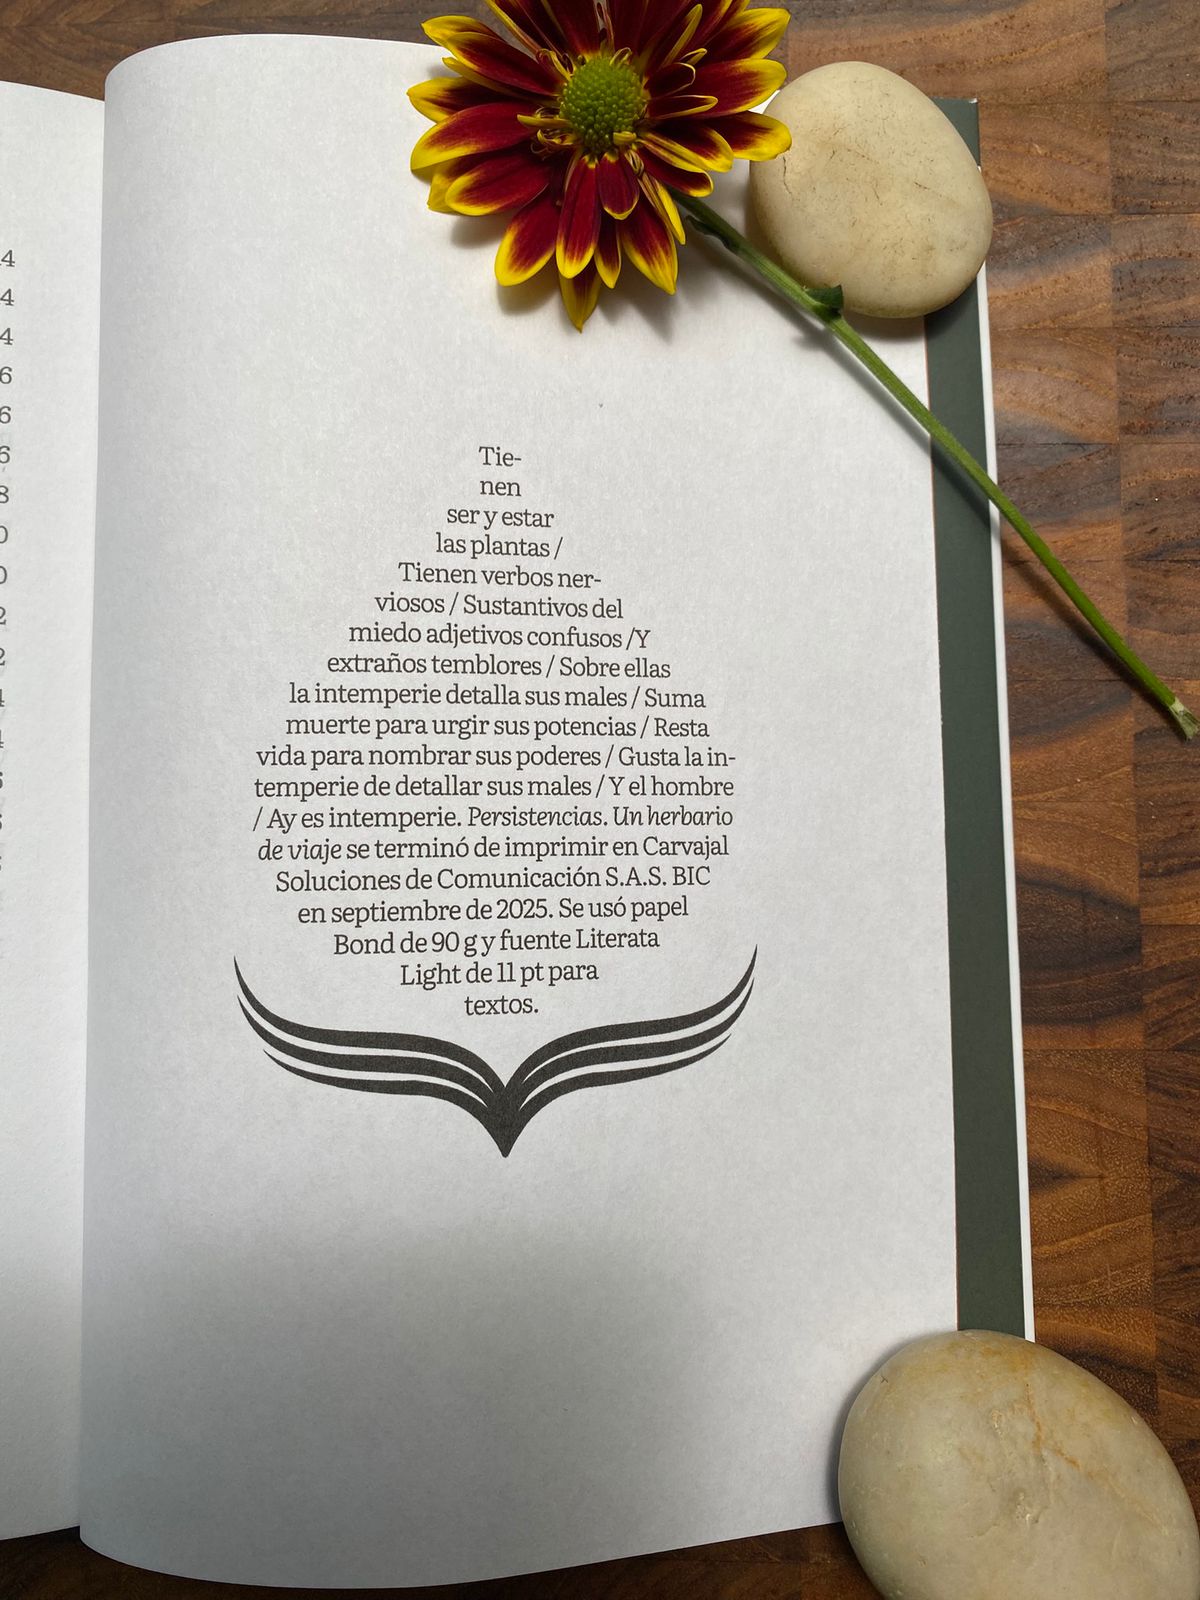 Tie-
nen
ser y estar
las plantas /
Tienen verbos ner-
viosos / Sustantivos del
miedo adjetivos confusos /Y
extraños temblores / Sobre ellas
la intemperie detalla sus males / Suma
muerte para urgir sus potencias / Resta
vida para nombrar sus poderes / Gusta la in-
temperie de detallar sus males / Y el hombre
/ Ay es intemperie. Persistencias. Un herbario
de viaje se terminó de imprimir en Carvajal
Soluciones de Comunicación S.A.S. BIC
en septiembre de 2025. Se usó papel
Bond de 90 g y fuente Literata
Light de 11 pt para
textos.